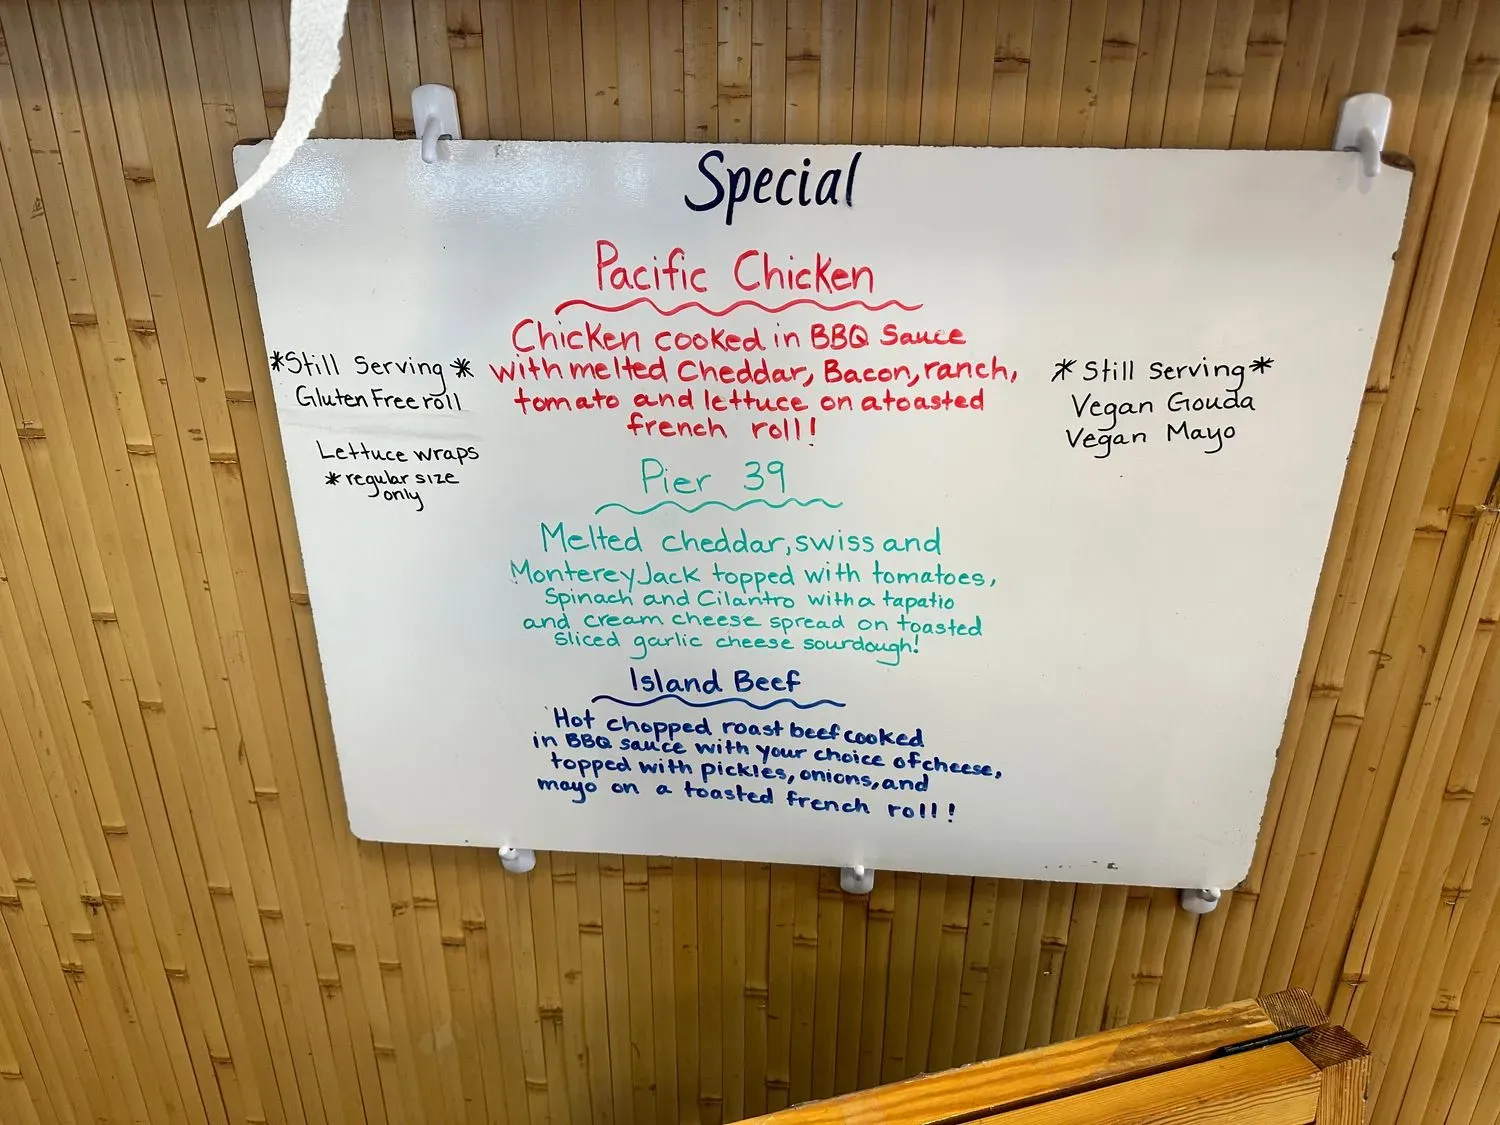 Special
Pacific Chicken
Chicken cooked in BBQ Sauce
with melted Cheddar, Bacon, ranch,
tomato and lettuce on a toasted
french roll!
*Still Serving*
Gluten Free roll
Lettuce wraps
*regular size
only
*Still Serving*
Vegan Gouda
Vegan Mayo
Pier 39
Melted cheddar, swiss and
Monterey Jack topped with tomatoes,
Spinach and Cilantro with a tapatio
and cream cheese spread on toasted
sliced garlic cheese sourdough!
Island Beef
Hot chopped roast beef cooked
in BBQ sauce with your choice of cheese,
topped with pickles, onions, and
mayo on a toasted french roll!